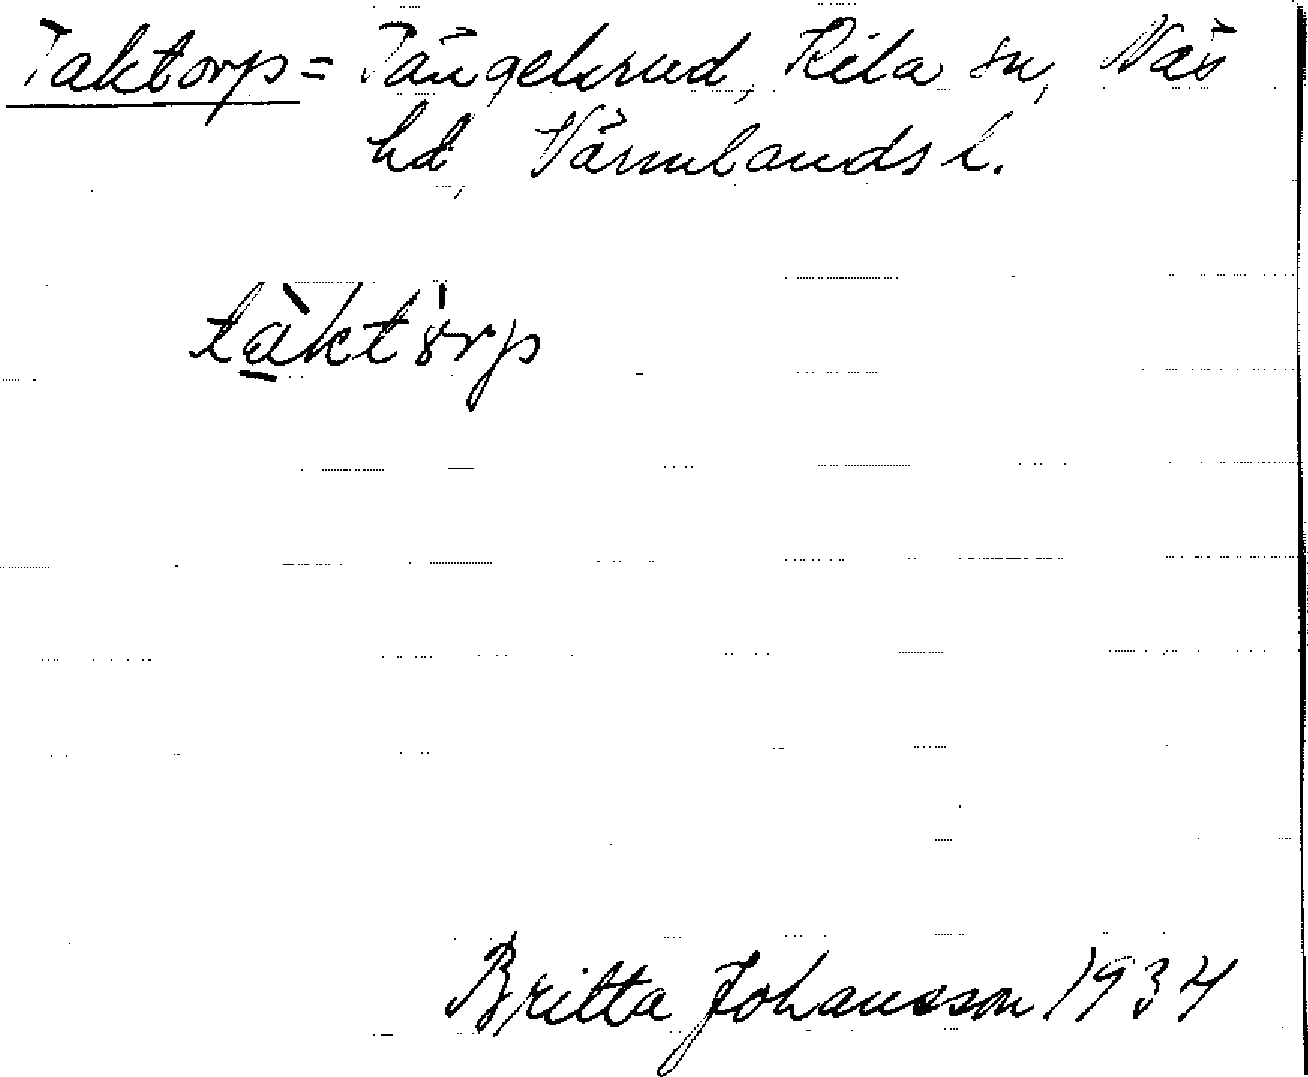 Taktorp = Tängelsrud, Kila sn, Näs
hd, Värmlands l.
tàktórp
Britta Johansson 1934